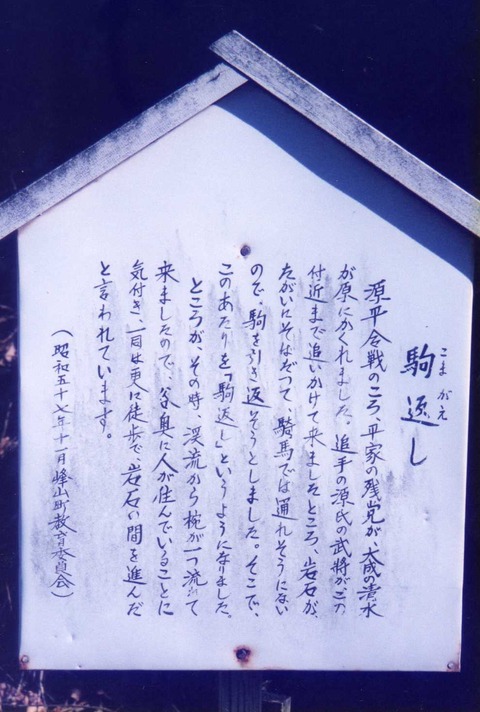 駒返し
こま がえ
源平合戦のころ、平家の残党が、大成の清水
が原にかくれました。追手の源氏の武将がこの
付近まで追いかけて来ましたところ、岩石が、
たがいにそばだつて、騎馬では通れそうにない
ので、駒を引き返そうとしました。そこで、
このあたりを「駒返しというようになりました。
ところが、その時、渓流から椀が一つ流れて
来ましたので、谷奥に人が住んでいることに
気付き、一同は更に徒歩で、岩石の間を進んだ
と言われています。
(昭和五十七年十一月峰山町教育委員会)